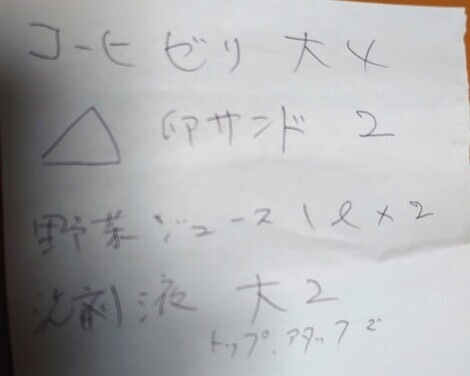 コーヒゼリ 大4
△ 印サンド 2
野菜ジュース 1ℓ×2
洗剤液 大2
トップ.アタック